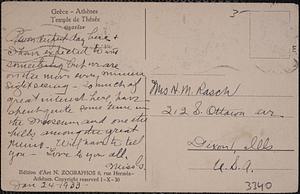 Grèce - Athènes
Temple de Thésée
Our expect day here &
I have expected to write
something but we are
on the move every minute
sight seeing - So much of
great interest here have
spent quite some time in
the museum and on the
hills among the great
ruins. Will have to tell
you - Love to you all,
Miss S.
Jan 24 - 1933
Edition d'Art N. ZOGRAPHOS 6, rue Hermès -
Athènes. Copyright reserved 1-X-30
Mrs H. M. Rasch
212 S. Ottawa ave
Dixon, Ills
U.S.A.
3340